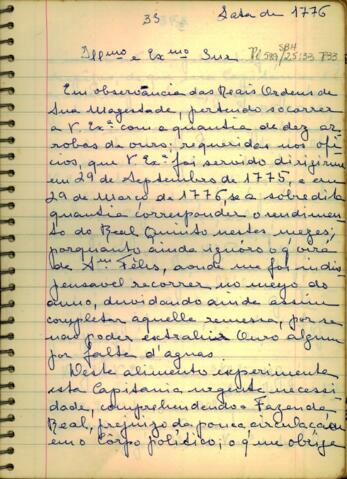 35 Data de 1776
Illmo e Exmo Snr
Em observância das Reais Ordens de
Sua Magestade, pertendo socorrer
a V. Exª com a quantia de dez ar-
robas de ouro; requeridas nos ofi-
cios, que V. Exª foi servido dirigirme
em 29 de Septembro de 1775, e em
29 de Março de 1776, se a sobredita
quantia corresponder o rendimen-
to do Real Quinto nestes mezes;
porquanto ainda ignóro o q' virá
de Sm Felis, aonde me foi indis-
pensavel recorrer no meyo do
anno, duvidando ainda assim
completar aquella remessa, por se
nao poder extrahir Ouro algum
por falta d'agoas.
Deste alimento experimenta
esta Capitania urgente necessi-
dade, comprehendendo a Fazenda
Real, prejuizo da pouca circulação
em o Côrpo politico; o q' me obriga